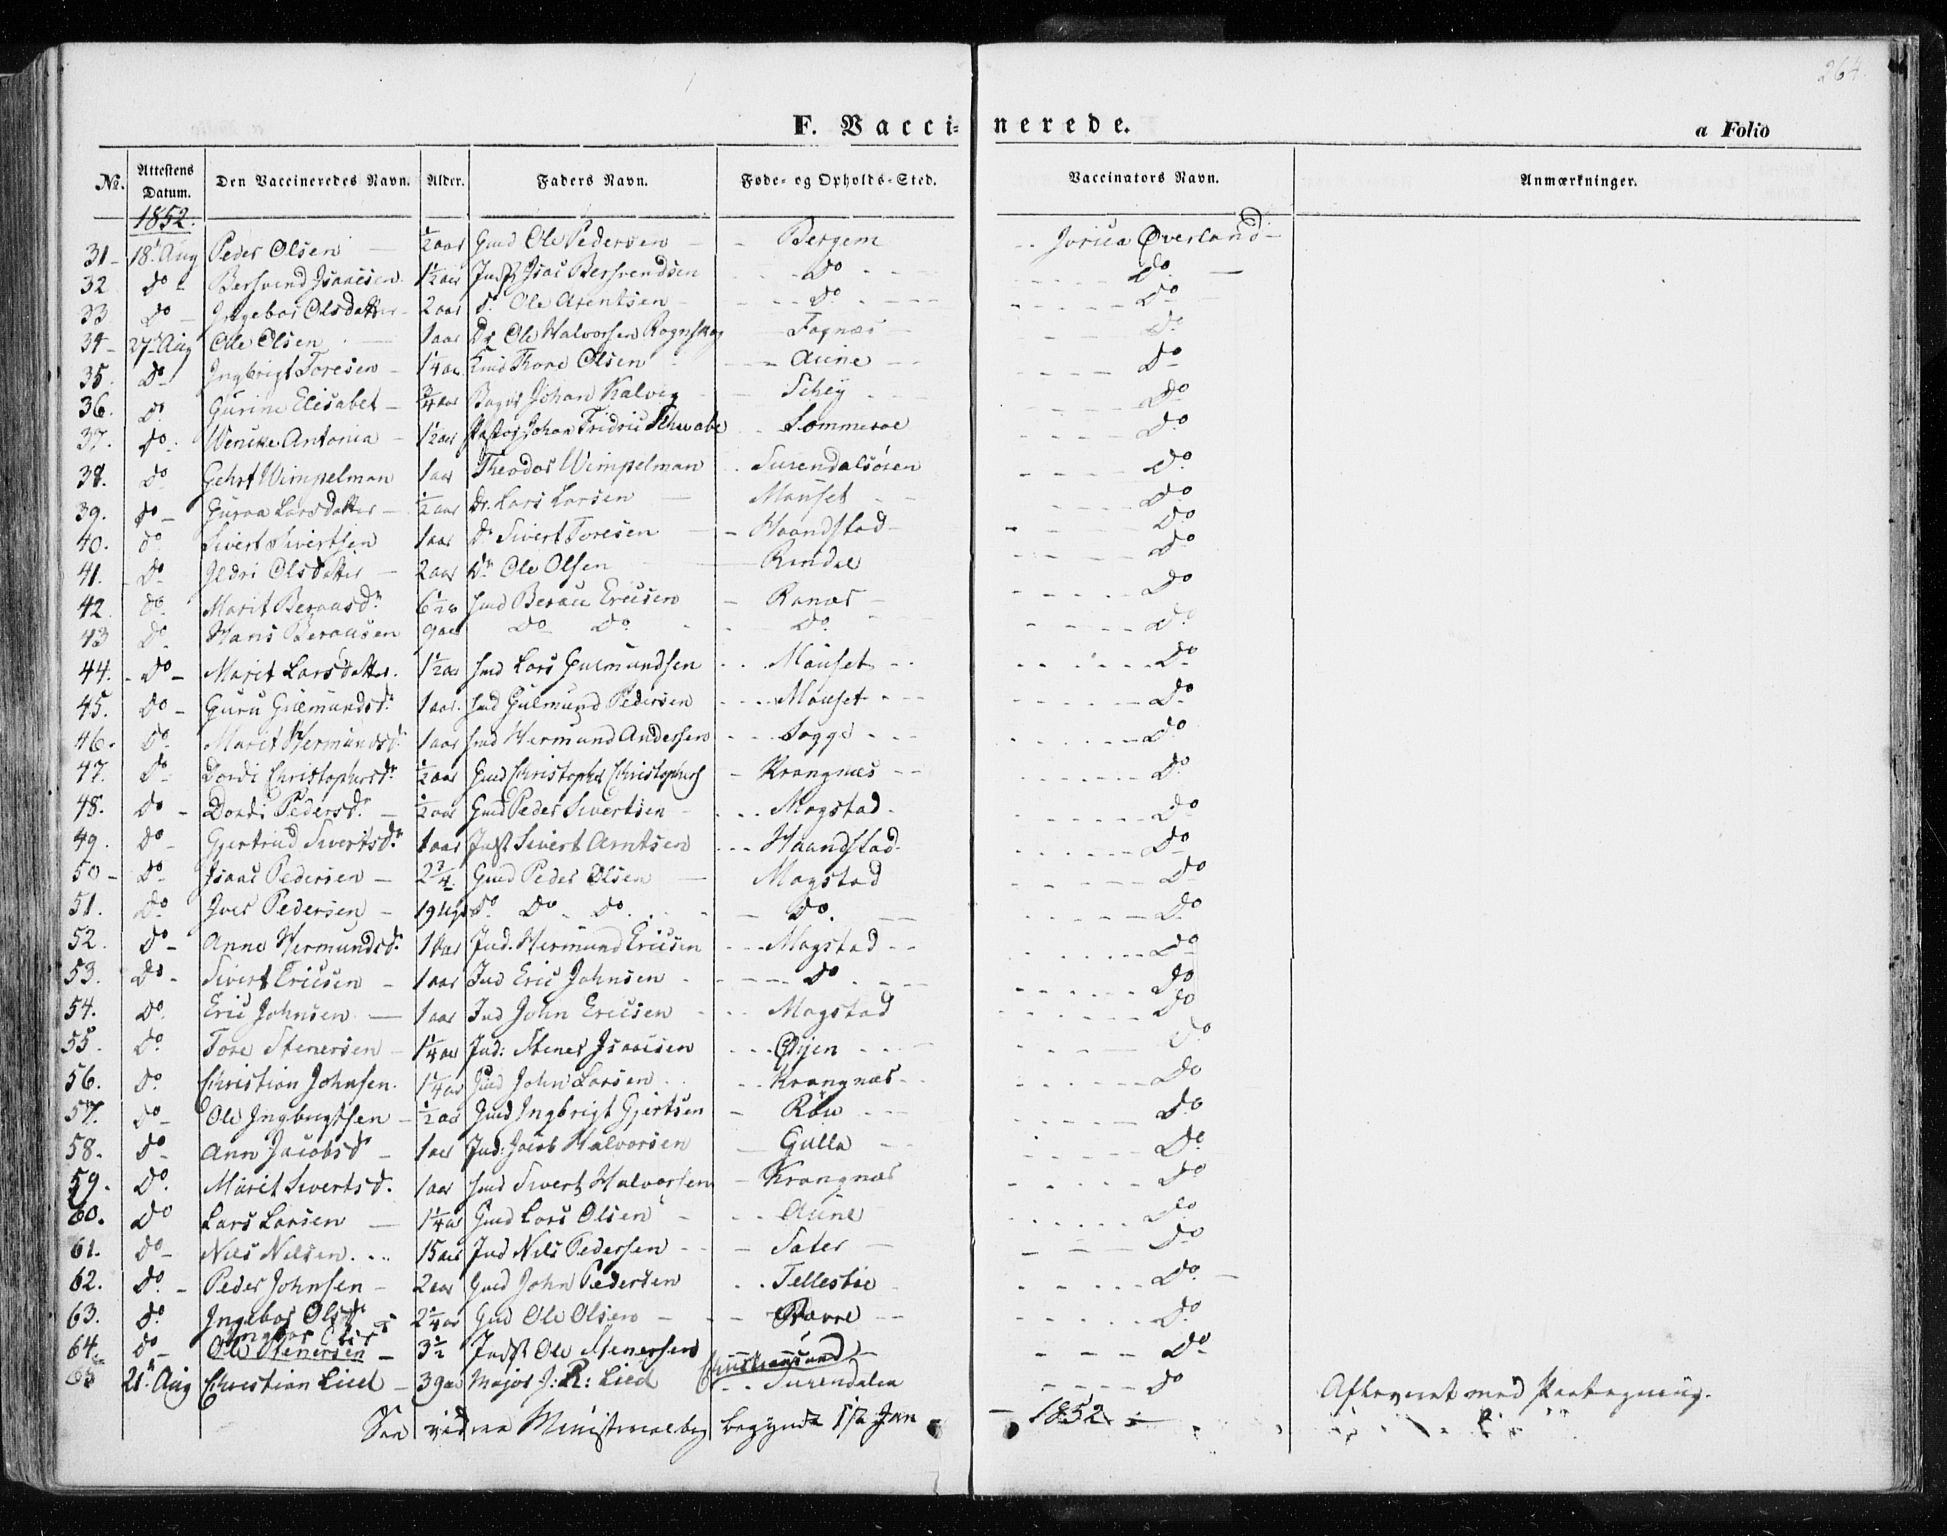 264.
F. Vaccinerede.
a Folio
No. Attestens Datum. Den Vaccineredes Navn. Alder. Faders Navn. Føde- og Opholds-Sted. Vaccinators Navn. Anmærkninger.
1852.
31 - 18 Aug Peder Olsen — ½ aar Gmd Ole Pedersen — Bergem - - Overland -
32 Do - Bersvend Isaacsen 1½ aar Isac Bersvendsen - - Do - - Do -
33 Do - Ingebor Olsdatter - 2 aar do Ole Arentsen - - Do - - Do
34 - 27 Aug Ole Olsen — 1 aar Do Ole Halvorsen Rognskog - Fagnæs - Do
35. Do - Ingbrigt Toresen - 1¼ aar Tore Olsen - - Aune - - Do
36. Do Gurine Elisabet - ¾ aar Johan Kalveg - Schey - - Do
37. Do - Wencke Antonia - 1½ aar Pastor Johan Fridric Schwabe - Sommeroe - Do
38. Do Gehrt Wimpelman 1 aar Theodor Wimpelman - Surendalsøren - Do
39. Do - Guroa Larsdatter - ½ aar Do Lars Larsen — Mauset - - Do
40. Do Sivert Sivertsen 1 aar Do Sivert Toresen - Haandstad - - Do
41. - Do - Ildri Olsdatter - 2 aar Do Ole Olsen — Rindal - Do
42. Do - Marit Beraasdr 6½ Beraae Ericsen - Ranæs - - Do
43 Do - Hans Beraasen 9 aar Do Do - - Do - - Do
44. - Do - Marit Larsdatter. 1½ aar Lars Gulmundsen - - Mauset - - Do
45. Do - Guru Gulmundsd. 1 aar. Gulmund Pedersen - - Mauset - - Do
46. Do - Marit Hermundsd. 1 aar Hermund Andersen - - Sogge - - Do
47. Do - Dordi Christophersdr ½ aar Gmd Christopher Christophers - Krangnæs - - Do
48. Do - Dordi Pedersdr. - ½ aar Gmd Peder Sivertsen - - Mogstad - Do
49. Do - Gjertrud Sivertsdr. 1 aar Sivert Arntsen - - Haandstad - Do
50 - Do - Isaac Pedersen - 2¾ Gmd Peder Olsen — Mogstad - Do
51. Do - Iver Pedersen - 19 Do Do - Do - - Do. - - Do
52. Do - Anne Hermundsd. Ind. Hermund Ericsen - - Mogstad - - Do
53. Do - Sivert Ericsen - 1 aar Ind Eric Johnsen - - Do - - Do
54. Do. Eric Johnsen — 1 aar Ind John Ericsen - - Mogstad - Do
55. Do. Tore Stenersen - 1¼ aar Ind: Stener Isaacsen - - Øyen - - Do
56. Do. Christian Johnsen. 1¼ aar Gmd John Larsen - - Krangnæs - - Do
57. Do - Ole Ingbrigtsen - ½ aar Gmd Ingbrigt Gjertsen - Røv - - Do
58. Do - Ann Jacobsdr - 1 aar Ind: Jacob Halvorsen — Gulla - - Do
59. Do. Marit Sivertsd. 1 aar Sivert Halvorsen - Krangnæs - Do
60. Do Lars Larsen — 1¼ aar Gmd Lars Olsen - - Aune - Do
61. Do - Nils Nilsen. - - 15 aar Ind Nils Pedersen - - Sater - - Do
62. Do. - Peder Johnsen - 2 aar Gmd John Pedersen - - Tellesbøe - Do -
63. Do Ingebor Olsdr 2¼ aar Gmd Ole Olsen - - - Do
64. Do - Ole Stenersen - 3½ Ole Stenersen - Do
65 21 Aug Christian Lied - 39 aar Major J: R: Lied Christiansund - Surendalen - Do
begyndt 1/2 Jan - 1852 -